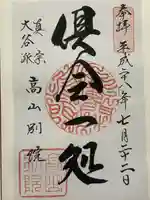 奉拝
平成二十八年七月二十二日
倶会一処
真宗
大谷派
高山別院